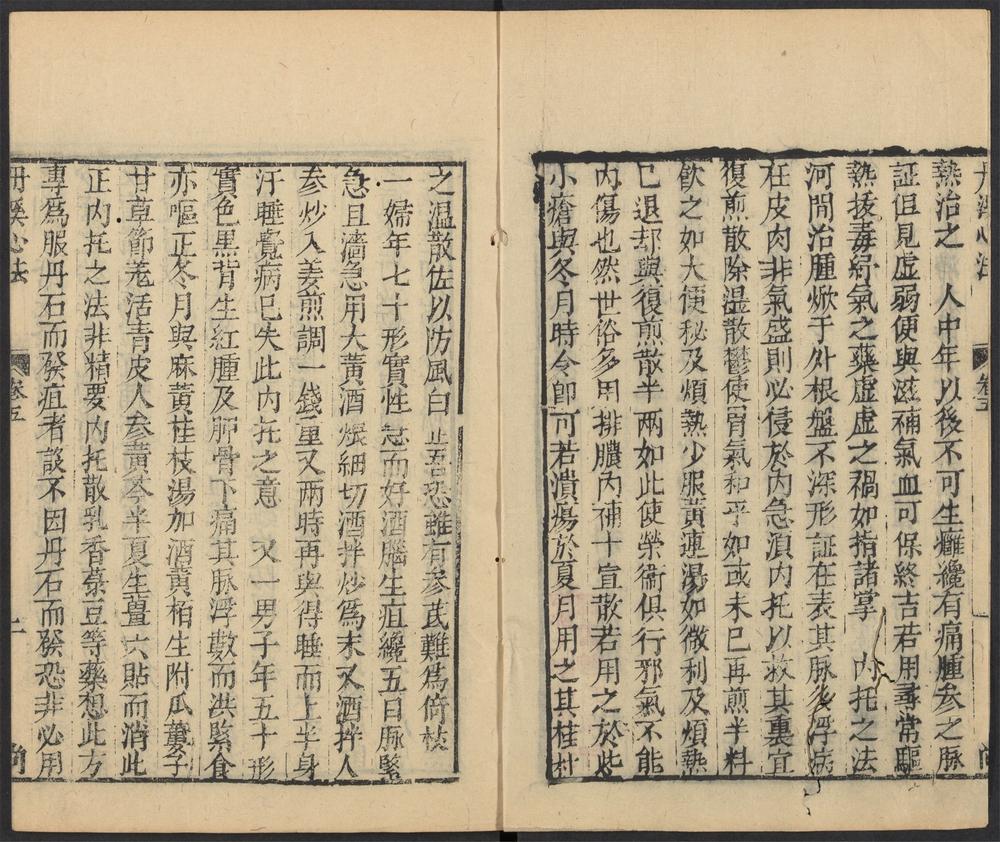 丹溪心法 卷五
熱治之 人中年以後不可生癰纔有痛腫參之脉
証但見虛弱便與滋補氣血可保終吉若用尋常驅
熱拔毒紓氣之藥虛虛之禍如指諸掌 內托之法
河間治腫焮于外根盤不深形証在表其脉多浮病
在皮肉非氣盛則必侵於內急須內托以救其裏宜
復煎散除湿散鬱使胃氣和平如或未已再煎半料
飲之如大便秘及煩熱少服黃連湯如微利及煩熱
已退却與復煎散半兩如此使榮衞俱行邪氣不能
內傷也然世俗多用排膿內補十宣散若用之於些
小瘡與冬月時令即可若潰瘍於夏月用之其桂朴
之温散佐以防風白芷吾恐雖有參芪難為倚杖
一婦年七十形實性急而好酒腦生疽纔五日脉緊
急且濇急用大黃酒煨細切酒拌炒為末又酒拌人
参炒入姜煎調一錢重又兩時再與得睡而上半身
汗睡覺病已失此內托之意 又一男子年五十形
實色黑背生紅腫及胛骨下痛其脉浮數而洪緊食
亦嘔正冬月與麻黃桂枝湯加酒黃栢生附瓜蔞子
甘草節羗活青皮人參黃芩半夏生薑六貼而消此
正內托之法非精要內托散乳香菉豆等藥想此方
專爲服丹石而發疽者設不因丹石而發恐非必用
丹溪心法 卷五 二